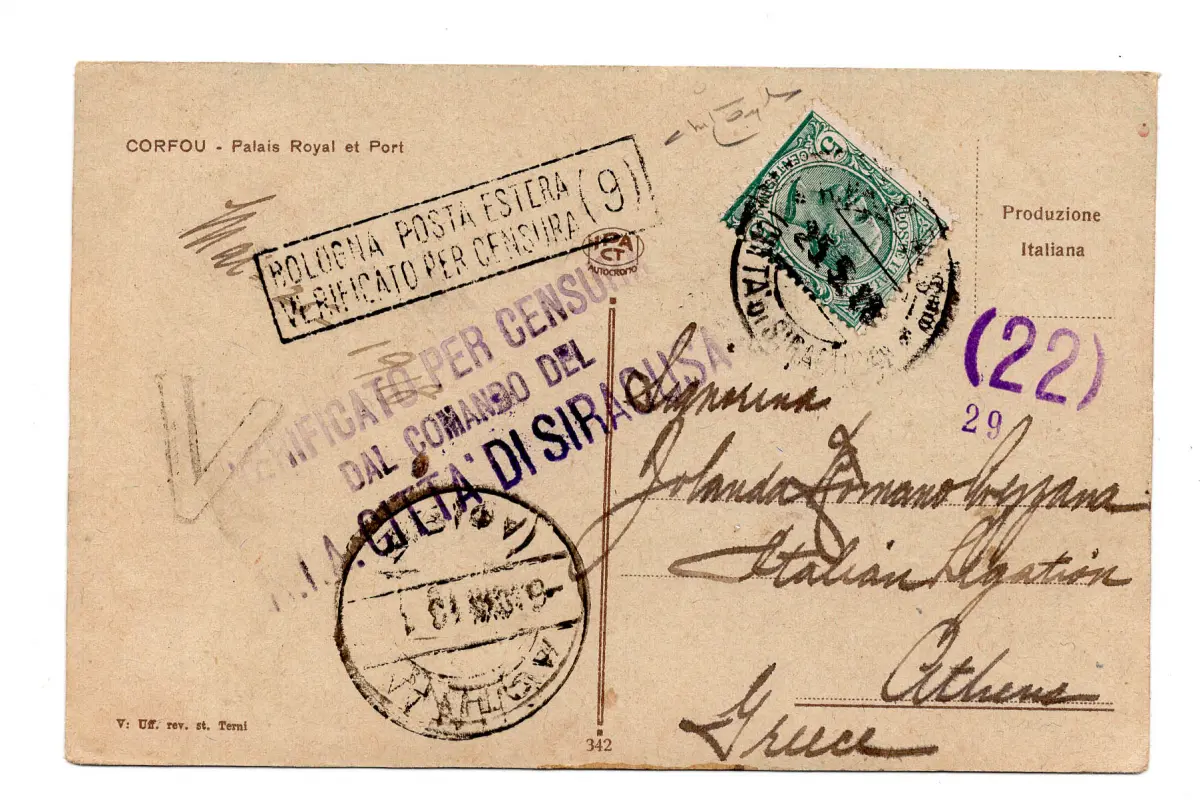 CORFOU - Palais Royal et Port
BOLOGNA POSTA ESTERA
VERIFICATO PER CENSURA (9)
IPA
CT
AUTOCROMO
Produzione
Italiana
VERIFICATO PER CENSURA
DAL COMANDO DEL
CITTA' DI SIRACUSA
(22)
29
Signorina
Jolanda Romano
Italian Legation
Athens
Greece
V: Uff. rev. st. Terni
342